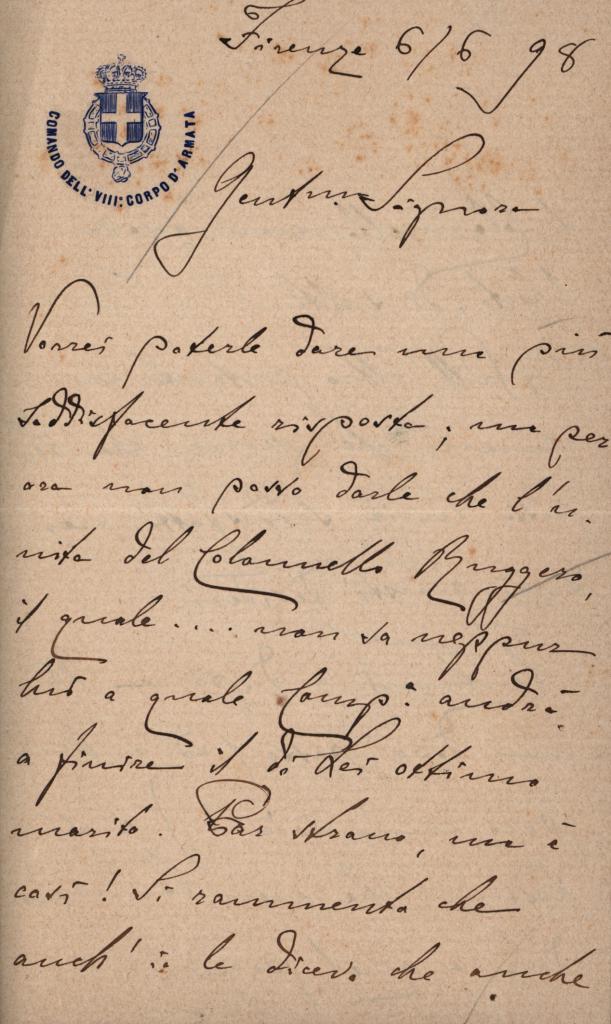 Firenze 6/6 98
COMANDO DELL' VIII: CORPO D'ARMATA
Gentma Signora
Vorrei poterle dare una più
soddisfacente risposta; ma per
ora non posso darle che l'u-
nita del Colonnello Ruggero,
il quale.... non sa neppur
lui a quale Comp.a andrà
a finire il di Lei ottimo
marito. Par strano, ma è
così! Si rammenta che
anch' io le dicevo che anche